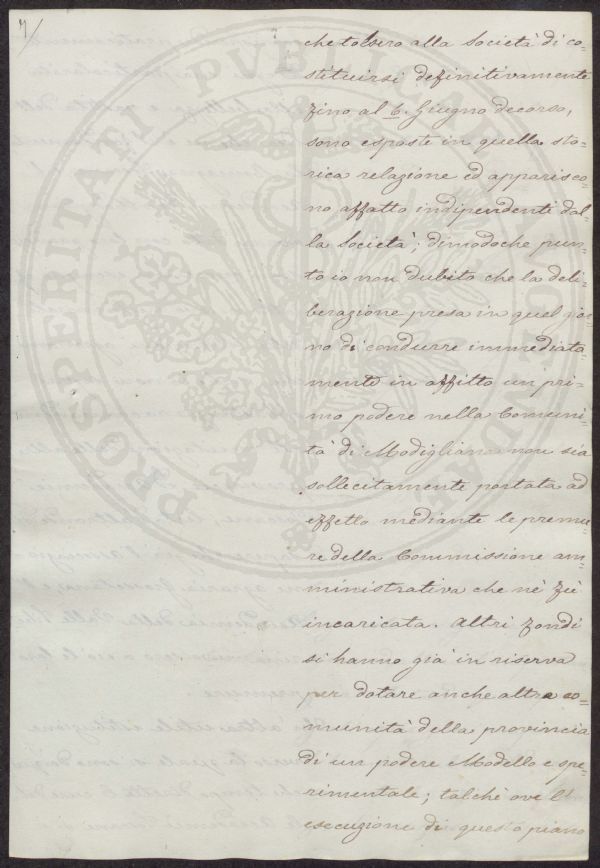 7/
che tolsero alla Società di co=
stituirsi definitivamente
fino al 6. Giugno decorso,
sono esposte in quella sto=
rica relazione ed apparisco=
no affatto indipendenti dal=
la Società; dimodoche pun=
to io non dubito che la deli=
berazione presa in quel gior=
no di condurre immediata=
mente in affitto un pri=
mo podere nella Comuni=
tà di Modigliana non sia
sollecitamente portata ad
effetto mediante le premu=
re della Commissione am=
ministrativa che nè fù
incaricata. Altri fondi
si hanno già in riserva
per dotare anche altre co=
munità della provincia
di un podere Modello e spe=
rimentale; talchè ove l'
esecuzione di questo piano
PROSPERITATI PUBLICAE AUGENDAE